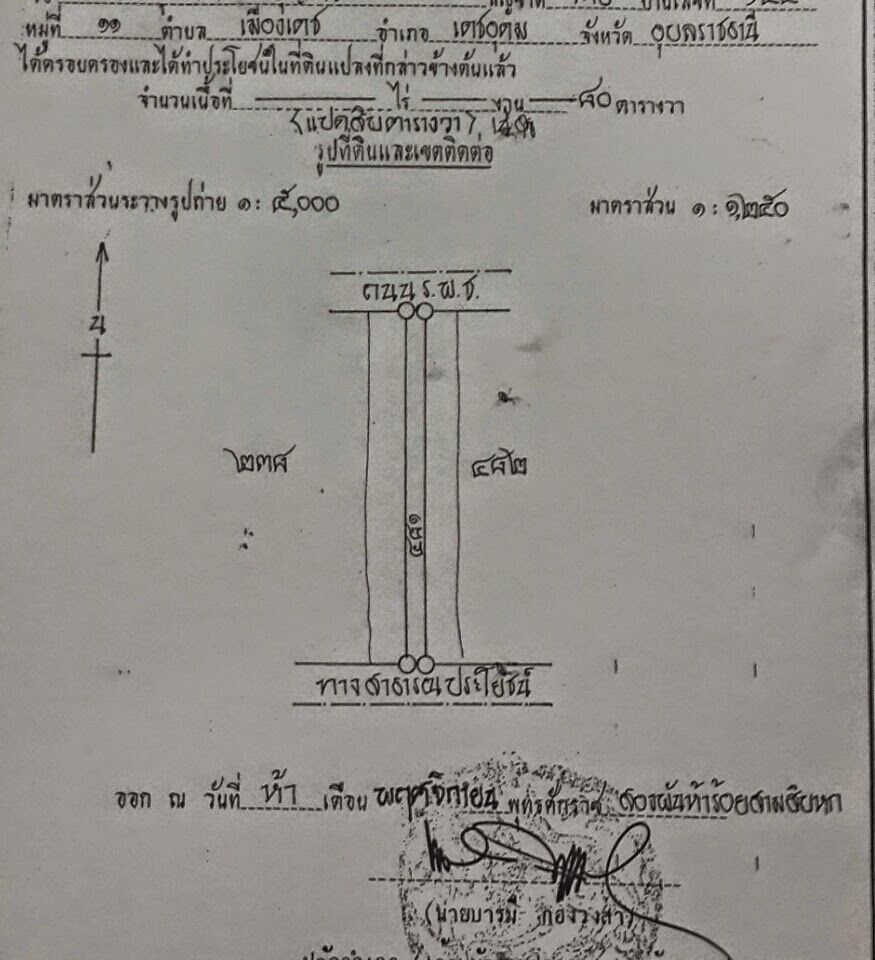 หมู่ที่ ๑๑ ตำบล เมืองเดช อำเภอ เดชอุดม จังหวัด อุบลราชธานี
ได้ครอบครองและได้ทำประโยชน์ในที่ดินแปลงที่กล่าวข้างต้นแล้ว
จำนวนเนื้อที่ ไร่ งาน ๘๐ ตารางวา
(แปดสิบตารางวา)
รูปที่ดินและเขตติดต่อ
มาตราส่วนระวางรูปถ่าย ๑ : ๕,๐๐๐ มาตราส่วน ๑ : ๑,๒๕๐
น
ถนน ร.พ.ช.
๒๓๘ ๔๘๒
๔๘๑
ทางสาธารณประโยชน์
ออก ณ วันที่ ห้า เดือน พฤศจิกายน พุทธศักราช สองพันห้าร้อยสามสิบหก
(นายบารมี กองวงสา)